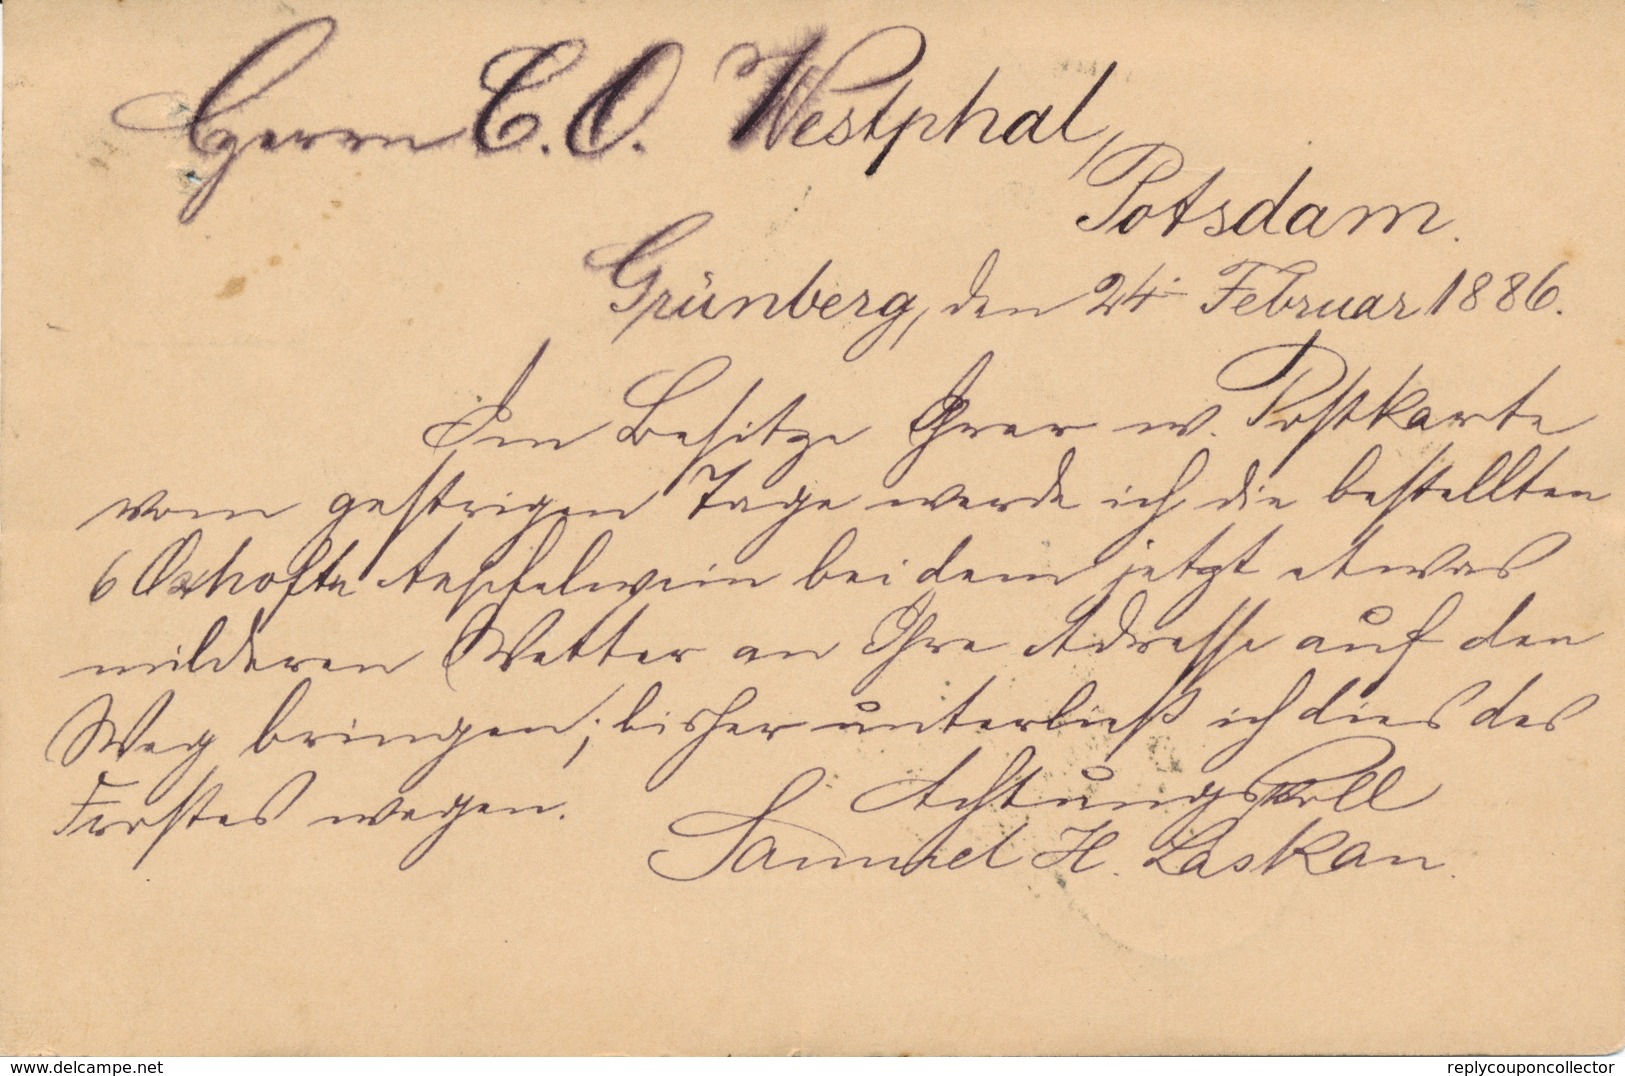 Herrn C. O. Westphal,
Potsdam.
Grünberg, den 24. Februar 1886.
Im Besitze Ihrer w. Postkarte
vom gestrigen Tage werde ich die bestellten
6 Oxhofte Aepfelwein bei dem jetzt etwas
milderen Wetter an Ihre Adresse auf den
Weg bringen; bisher unterließ ich dies des
Frostes wegen.
Achtungsvoll
Samuel H. Laskau.
delcampe.net
replycouponcollector